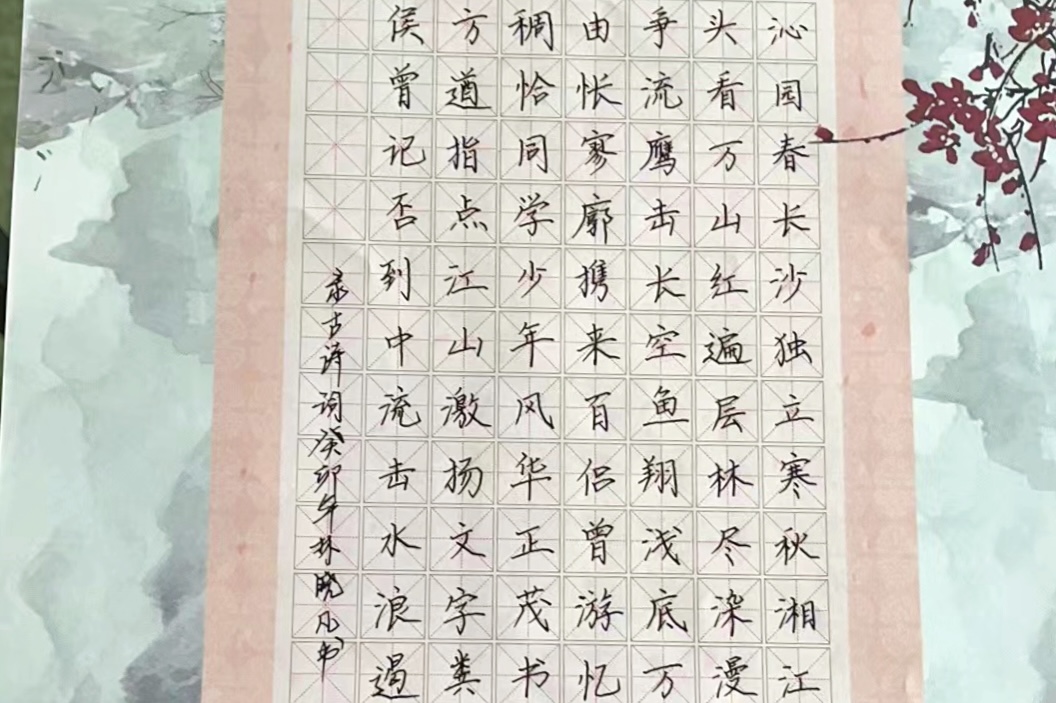 沁园春长沙独立寒秋湘江
头看万山红遍层林尽染漫
争流鹰击长空鱼翔浅底万
由怅寥廓携来百侣曾游忆
稠恰同学少年风华正茂书
方遒指点江山激扬文字粪
侯曾记否到中流击水浪遏
录古诗词癸卯年林晓凡书